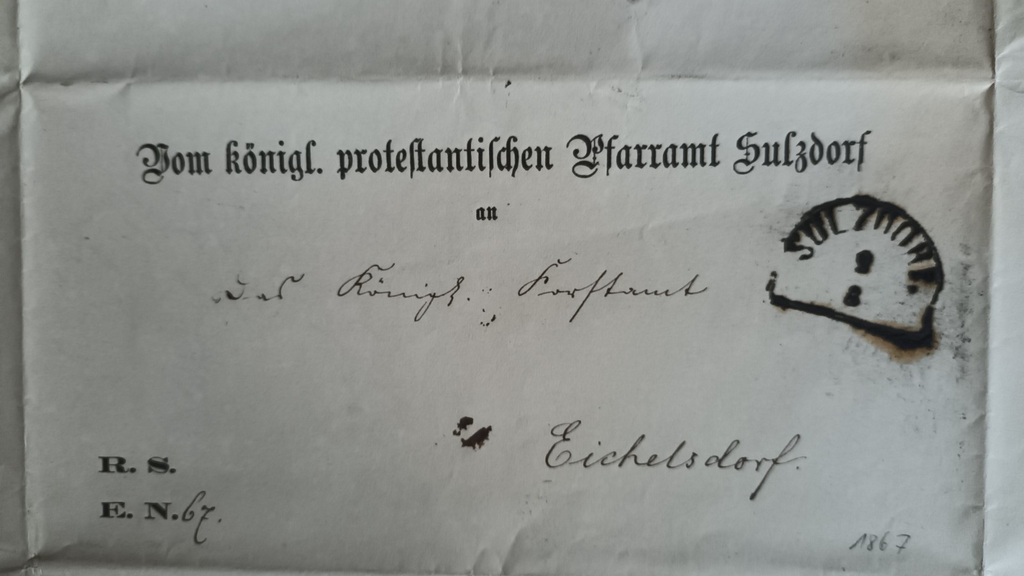 Vom königl. protestantischen Pfarramt Sulzdorf
an
Das Königl. Forstamt
Eichelsdorf.
R. S.
E. N. 67.
1867